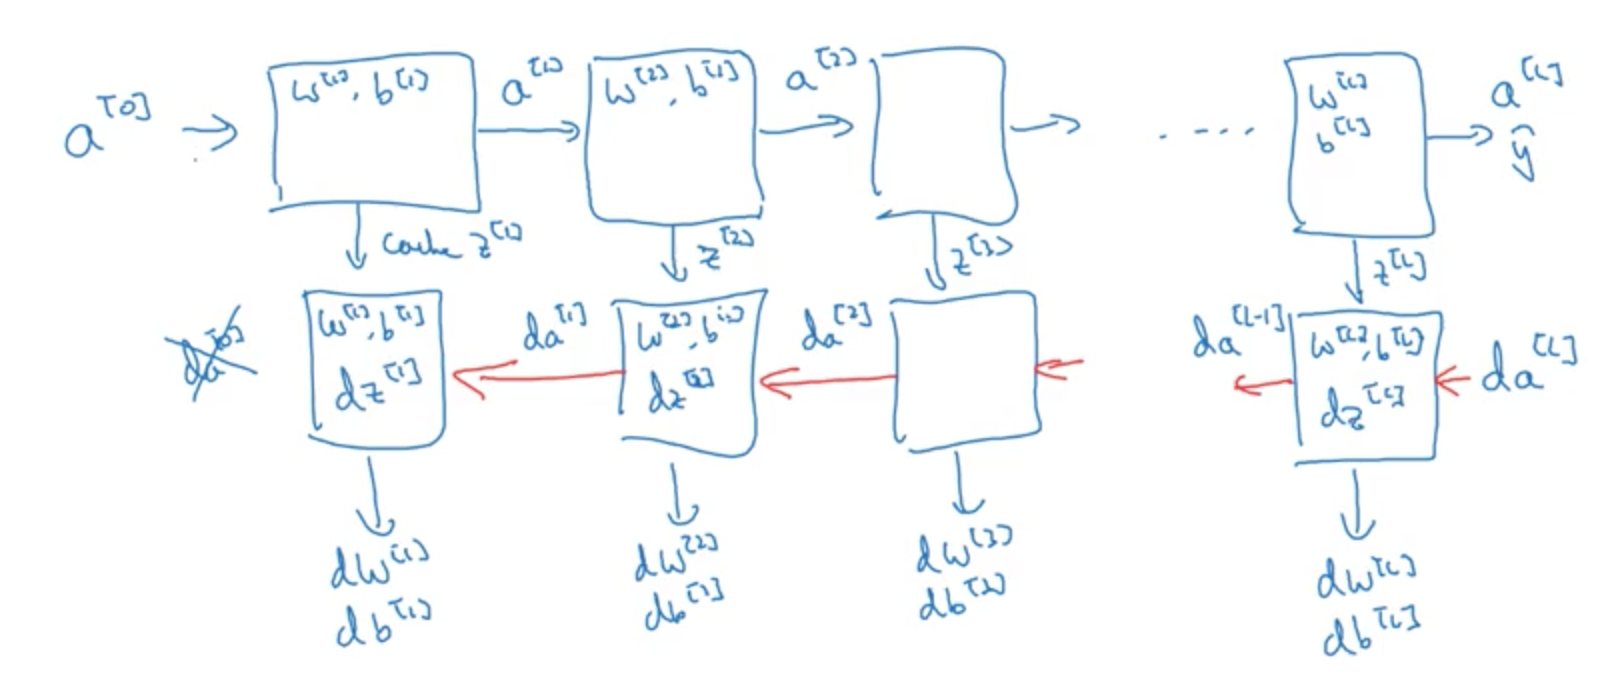 a^[0]
w^[1], b^[1]
a^[1]
w^[2], b^[2]
a^[2]
w^[L]
b^[L]
a^[L]
ŷ
cache z^[1]
z^[2]
z^[3]
z^[L]
da^[0]
w^[1], b^[1]
dz^[1]
da^[1]
w^[2], b^[2]
dz^[2]
da^[2]
da^[L-1]
w^[L], b^[L]
dz^[L]
da^[L]
dw^[1]
db^[1]
dw^[2]
db^[2]
dw^[3]
db^[3]
dw^[L]
db^[L]